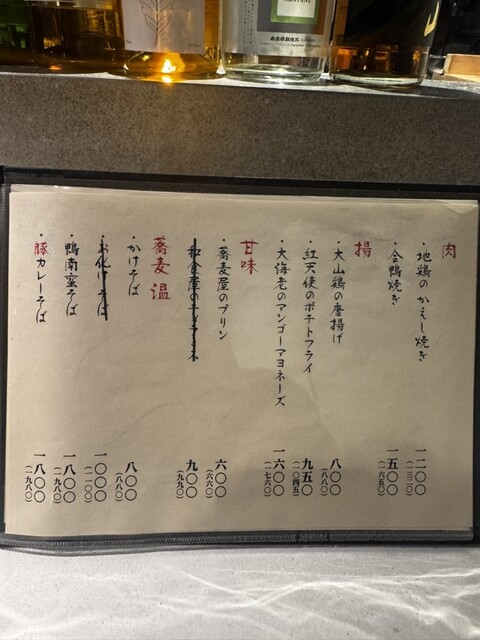 肉
・地鶏のかえし焼き 一二〇〇(一三二〇)
・合鴨焼き 一五〇〇(一六五〇)
揚
・大山鶏の唐揚げ 八〇〇(八八〇)
・紅天使のポテトフライ 九五〇(一〇四五)
・大海老のマンゴーマヨネーズ 一六〇〇(一七六〇)
甘味
・蕎麦屋のプリン 六〇〇(六六〇)
九〇〇(九九〇)
蕎麦 温
・かけそば 八〇〇(八八〇)
・お化けそば 一〇〇〇(一一〇〇)
・鴨南蛮そば 一八〇〇(一九八〇)
・豚カレーそば 一八〇〇(一九八〇)